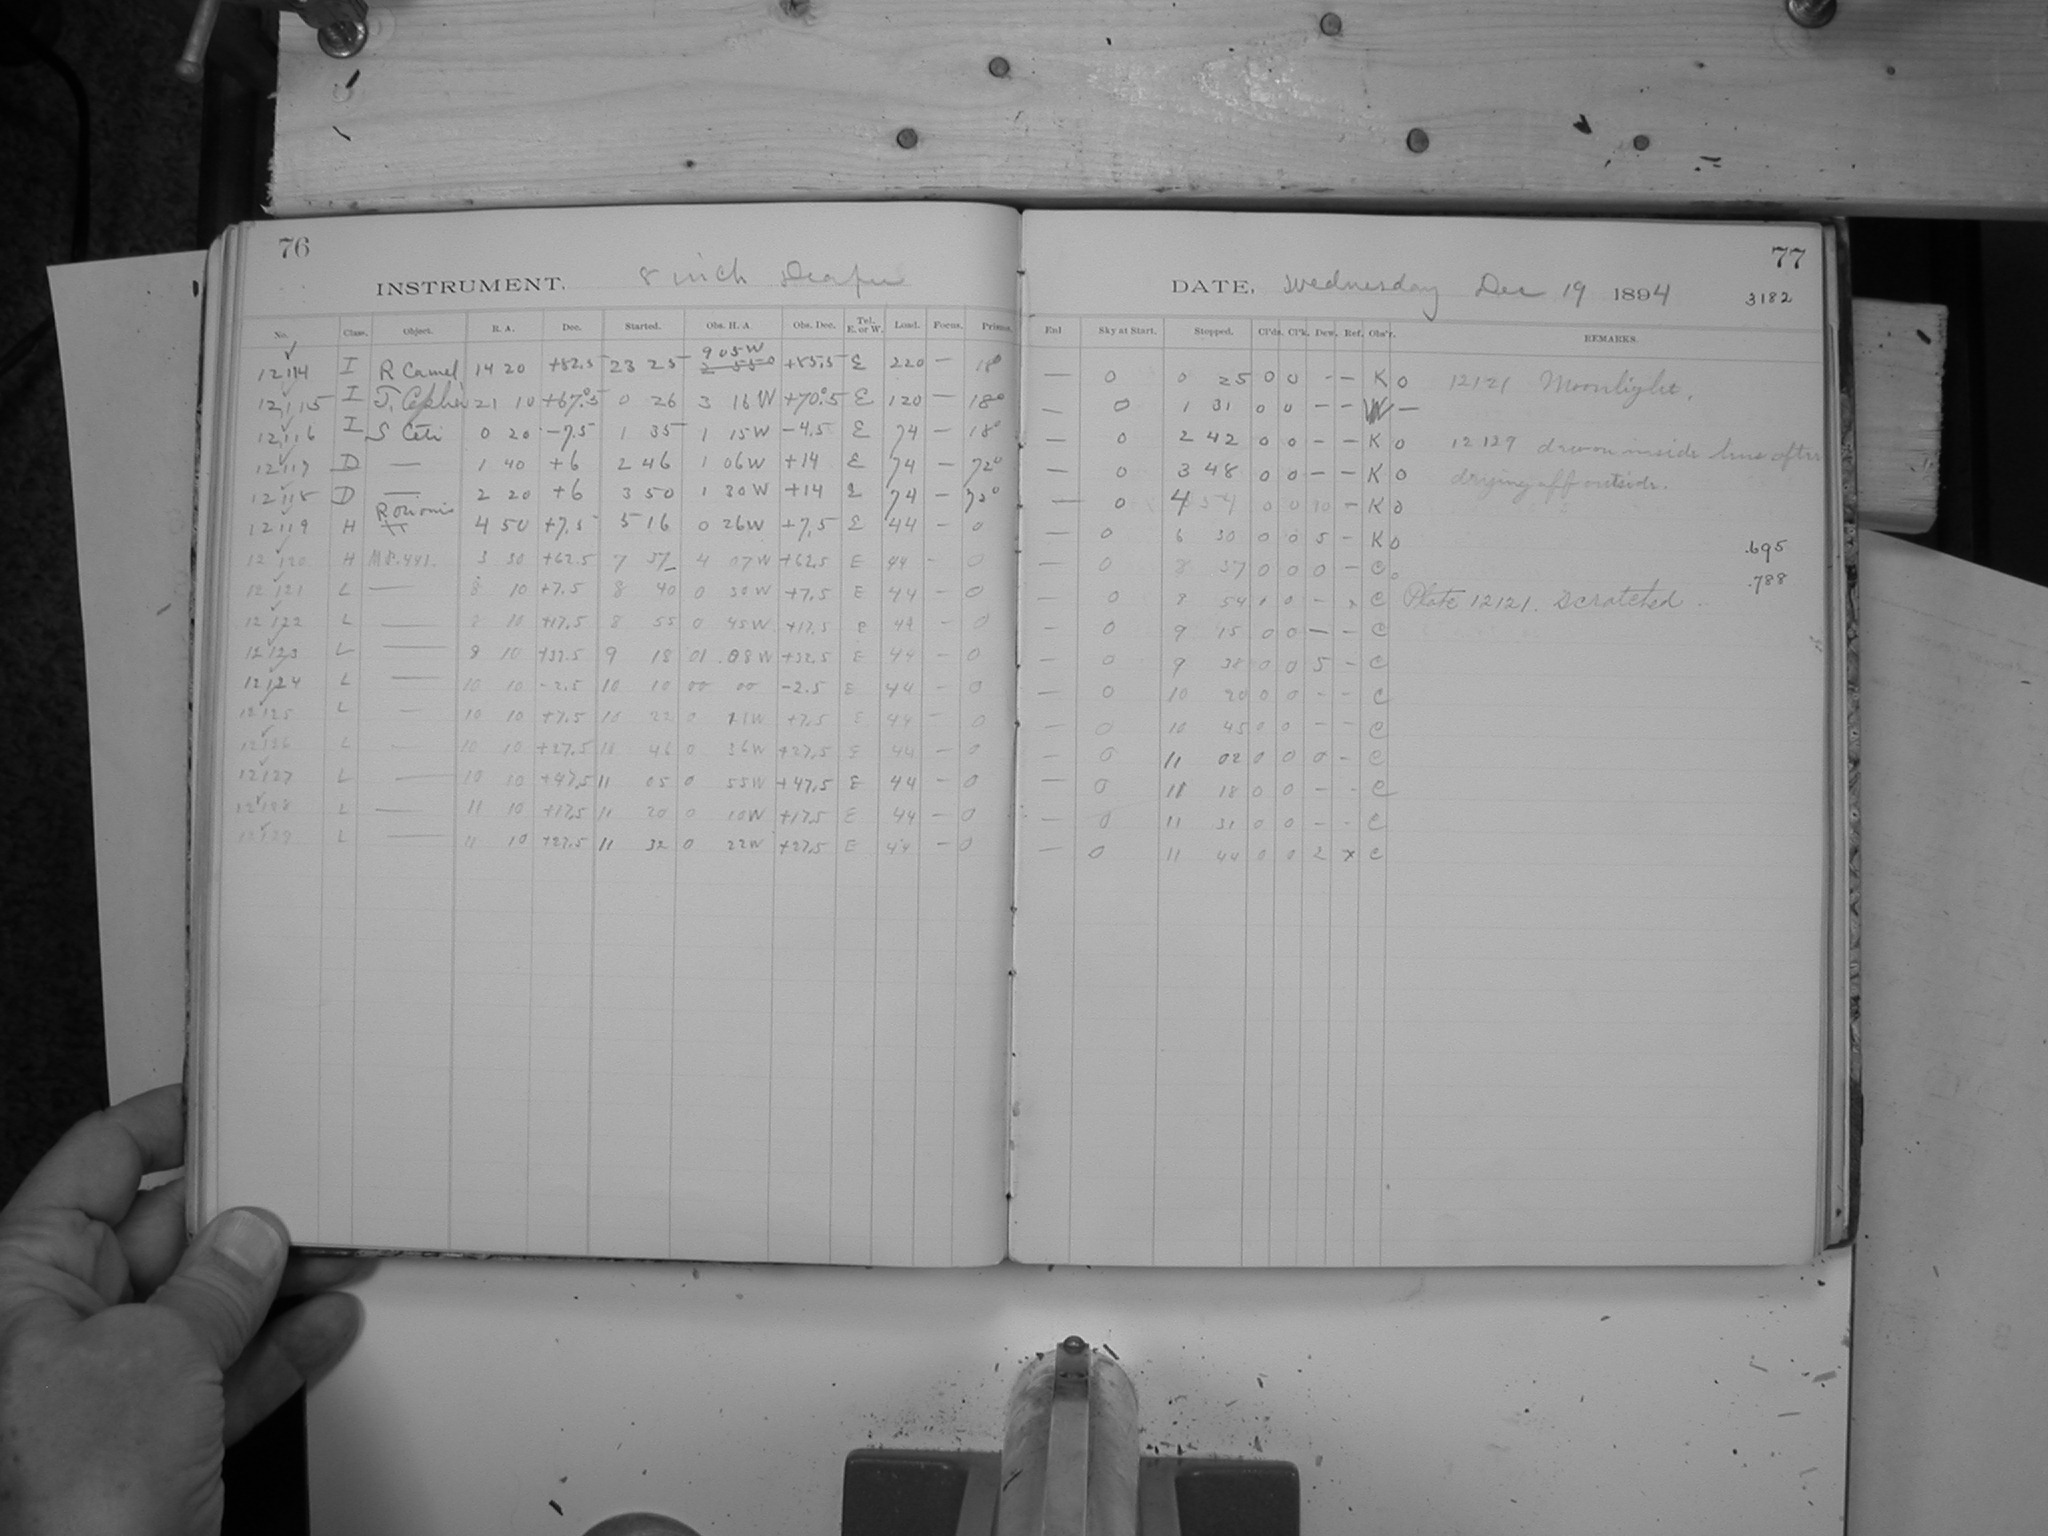 76
INSTRUMENT. 8 inch Draper
No. Class. Object. R. A. Dec. Started. Obs. H. A. Obs. Dec. Tel. E. or W. Load. Focus. Prisms.
9 05 W
12114 I R Camel 14 20 +82.5 23 25 +85.5 E 220 — 18°
12115 I T. Cephei 21 10 +67.5 0 26 3 16 W +70.5 E 120 — 18°
12116 I S Ceti 0 20 -7.5 1 35 1 15 W -4.5 E 74 — 18°
12117 D — 1 40 +6 2 46 1 06 W +14 E 74 — 72°
12118 D — 2 20 +6 3 50 1 30 W +14 E 74 — 72°
12119 H R Orionis 4 50 +7.5 5 16 0 26 W +7.5 E 44 — 0
12120 H 3 30 +62.5 7 37 4 07 W +62.5 E 44 — 0
12121 L — 8 10 +7.5 8 40 0 30 W +7.5 E 44 — 0
12122 L — 8 10 +17.5 8 55 0 45 W +17.5 E 44 — 0
12123 L — 8 10 +32.5 9 18 01 08 W +32.5 E 44 — 0
12124 L — 10 10 -2.5 10 10 00 00 -2.5 E 44 — 0
12125 L — 10 10 +7.5 10 22 0 W +7.5 E 44 — 0
12126 L — 10 10 +27.5 10 46 0 36 W +27.5 E 44 — 0
12127 L — 10 10 +47.5 11 05 0 55 W +47.5 E 44 — 0
12128 L — 11 10 +17.5 11 20 0 10 W +17.5 E 44 — 0
12129 L — 11 10 +27.5 11 32 0 22 W +27.5 E 44 — 0
77
DATE, Wednesday Dec 19 1894 3182
Enl Sky at Start. Stopped. Cl'ds. Cl'k. Dew. Ref. Obs'r. REMARKS.
— 0 0 25 0 0 - - K 0 12121 Moonlight.
— 0 1 31 0 0 - - W —
— 0 2 42 0 0 - - K 0 12129 dew on inside lens after
— 0 3 48 0 0 - - K 0 drying off outside.
— 0 4 54 0 0 10 - K 0
— 0 6 30 0 0 5 - K 0 .695
— 0 8 37 0 0 0 - C 0 .788
— 0 8 54 0 0 - x C Plate 12121. Scratched
— 0 9 15 0 0 — - C
— 0 9 38 0 0 5 - C
— 0 10 20 0 0 - - C
— 0 10 45 0 0 - - C
— 0 11 02 0 0 0 - C
— 0 11 18 0 0 - - C
— 0 11 31 0 0 - - C
— 0 11 44 0 0 2 x C